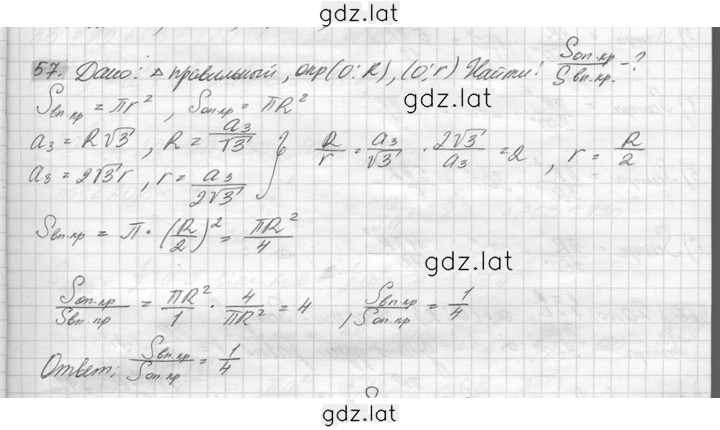 gdz.lat
57. Дано: △ правильный, окр(O;R), (O;r) Найти: Sоп.кр/Sвп.кр. - ?
Sвп.кр = πr², Sоп.кр = πR²
gdz.lat
a₃ = R√3, R = a₃/√3 } R/r = a₃/√3 · 2√3/a₃ = 2, r = R/2
a₃ = 2√3r, r = a₃/2√3
Sвп.кр = π · (R/2)² = πR²/4
gdz.lat
Sоп.кр/Sвп.кр = πR²/1 · 4/πR² = 4, Sвп.кр/Sоп.кр = 1/4
Ответ: Sвп.кр/Sоп.кр = 1/4
gdz.lat